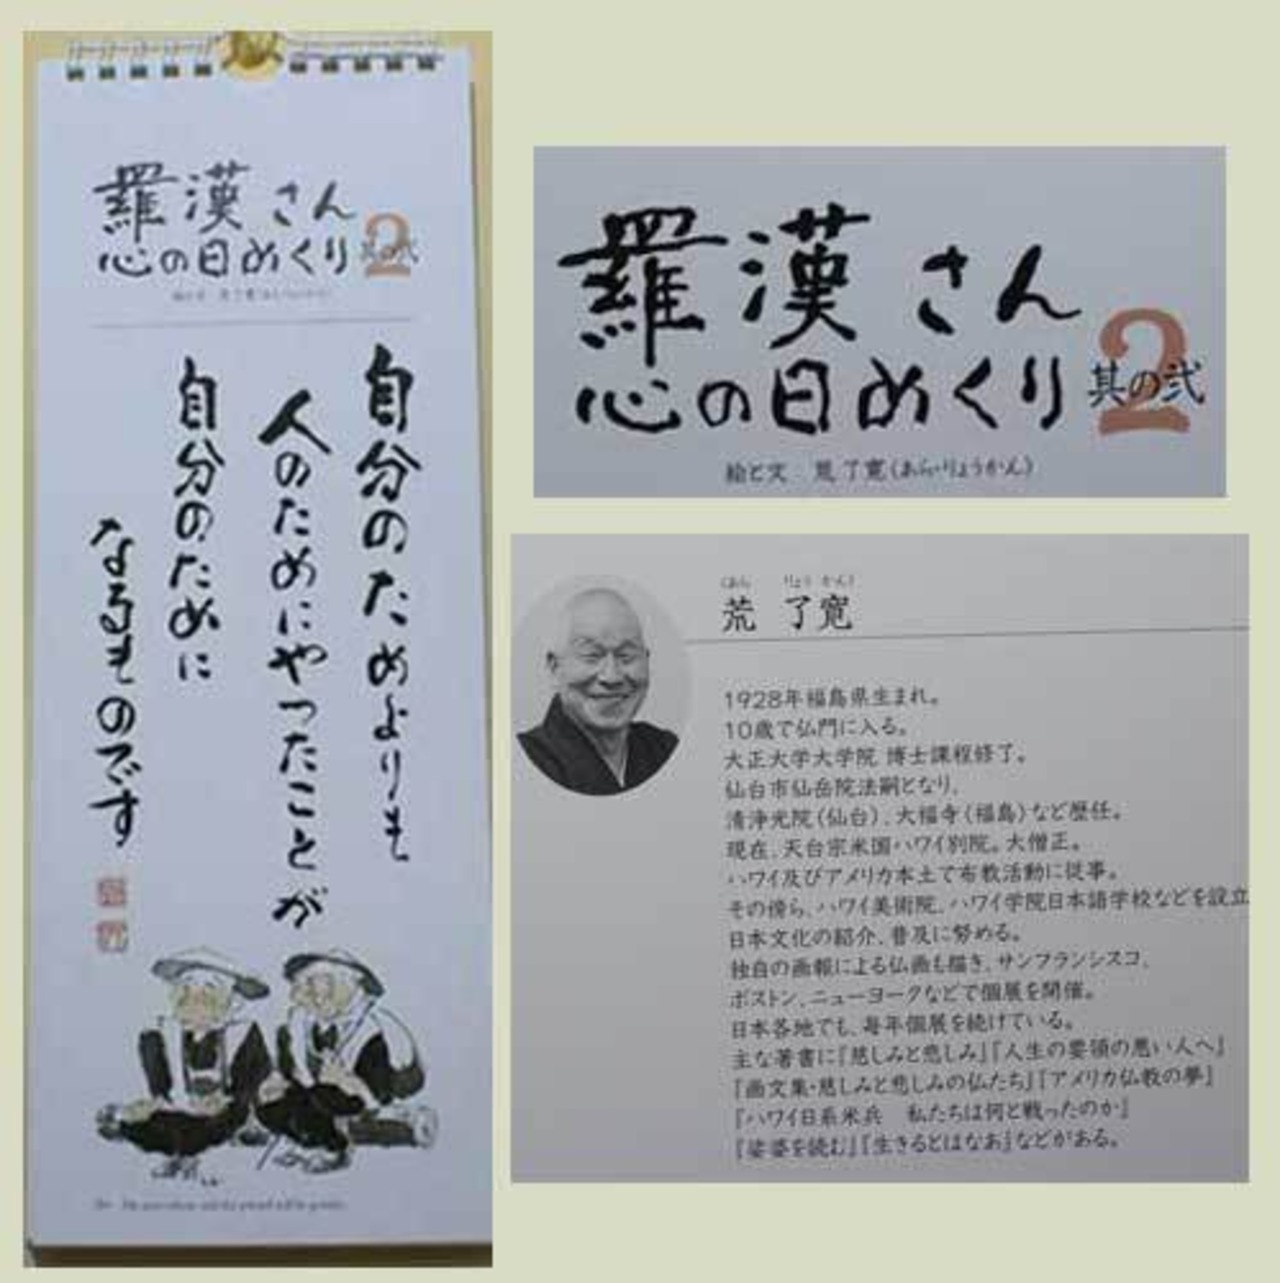 羅漢さん
心の日めくり 其の弐
2
自分のためよりも
人のためにやったことが
自分のために
なるものです
羅漢さん
心の日めくり
2
其の弐
絵と文 荒 了寛(あら・りょうかん)
(あら りょう かん)
荒 了寛
1928年福島県生まれ。
10歳で仏門に入る。
大正大学大学院 博士課程修了。
仙台市仙岳院法嗣となり、
清浄光院(仙台)、大福寺(福島)など歴任。
現在、天台宗米国ハワイ別院。大僧正。
ハワイ及びアメリカ本土で布教活動に従事。
その傍ら、ハワイ美術院、ハワイ学院日本語学校などを設立
日本文化の紹介、普及に努める。
独自の画報による仏画も描き、サンフランシスコ、
ボストン、ニューヨークなどで個展を開催。
日本各地でも、毎年個展を続けている。
主な著書に『慈しみと悲しみ』『人生の要領の悪い人へ』
『画文集・慈しみと悲しみの仏たち』『アメリカ仏教の夢』
『ハワイ日系米兵 私たちは何と戦ったのか』
『娑婆を読む』『生きるとはなあ』などがある。